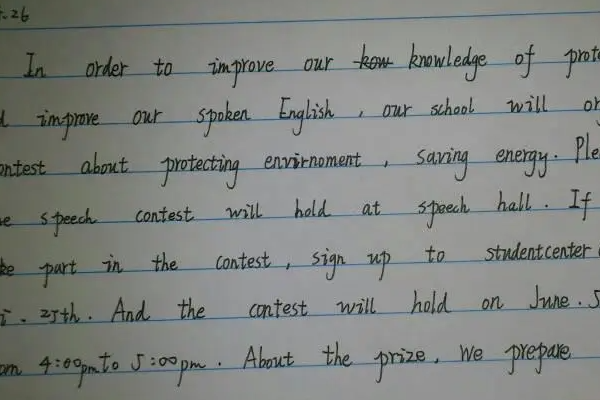 .26
In order to improve our kow knowledge of prote
d improve our spoken English , our school will or
ontest about protecting envirnoment , saving energy. Ple
e speech contest will hold at speech hall . If
ke part in the contest , sign up to studentcenter
i. 25th. And the contest will hold on June. 5
om 4:00pm to 5:00pm . About the prize, we prepare